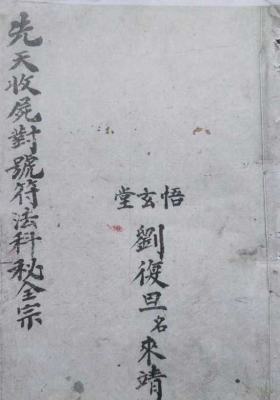 先天收屍對號符法科秘全宗
悟玄堂
劉復旦名來靖